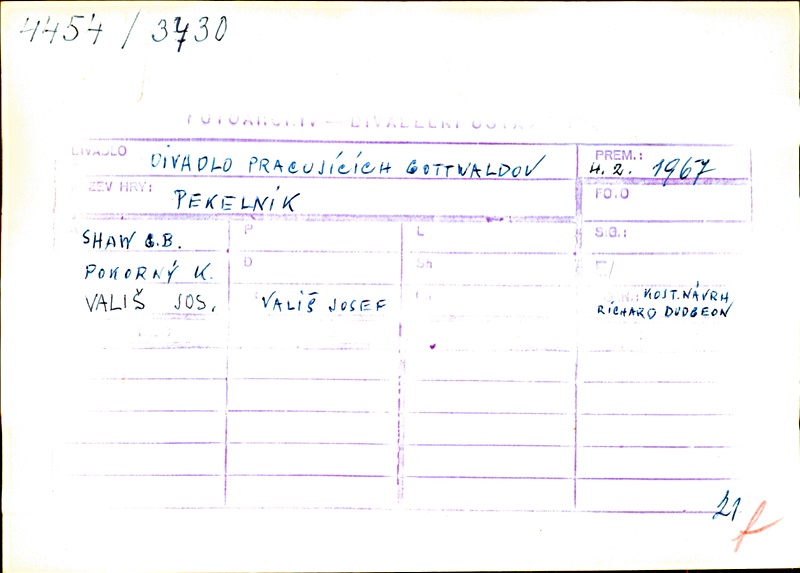 4454 / 3730
FOTOARCHIV — DIVADELNÍ ÚSTAV
DIVADLO DIVADLO PRACUJÍCÍCH GOTTWALDOV PREM.: 4. 2. 1967
NÁZEV HRY: PEKELNÍK FO.O
SHAW G.B. P L S.G.:
POKORNÝ K. D Sh
VALIŠ JOS. VALIŠ JOSEF KOST. NÁVRH
RICHARD DUDGEON
21